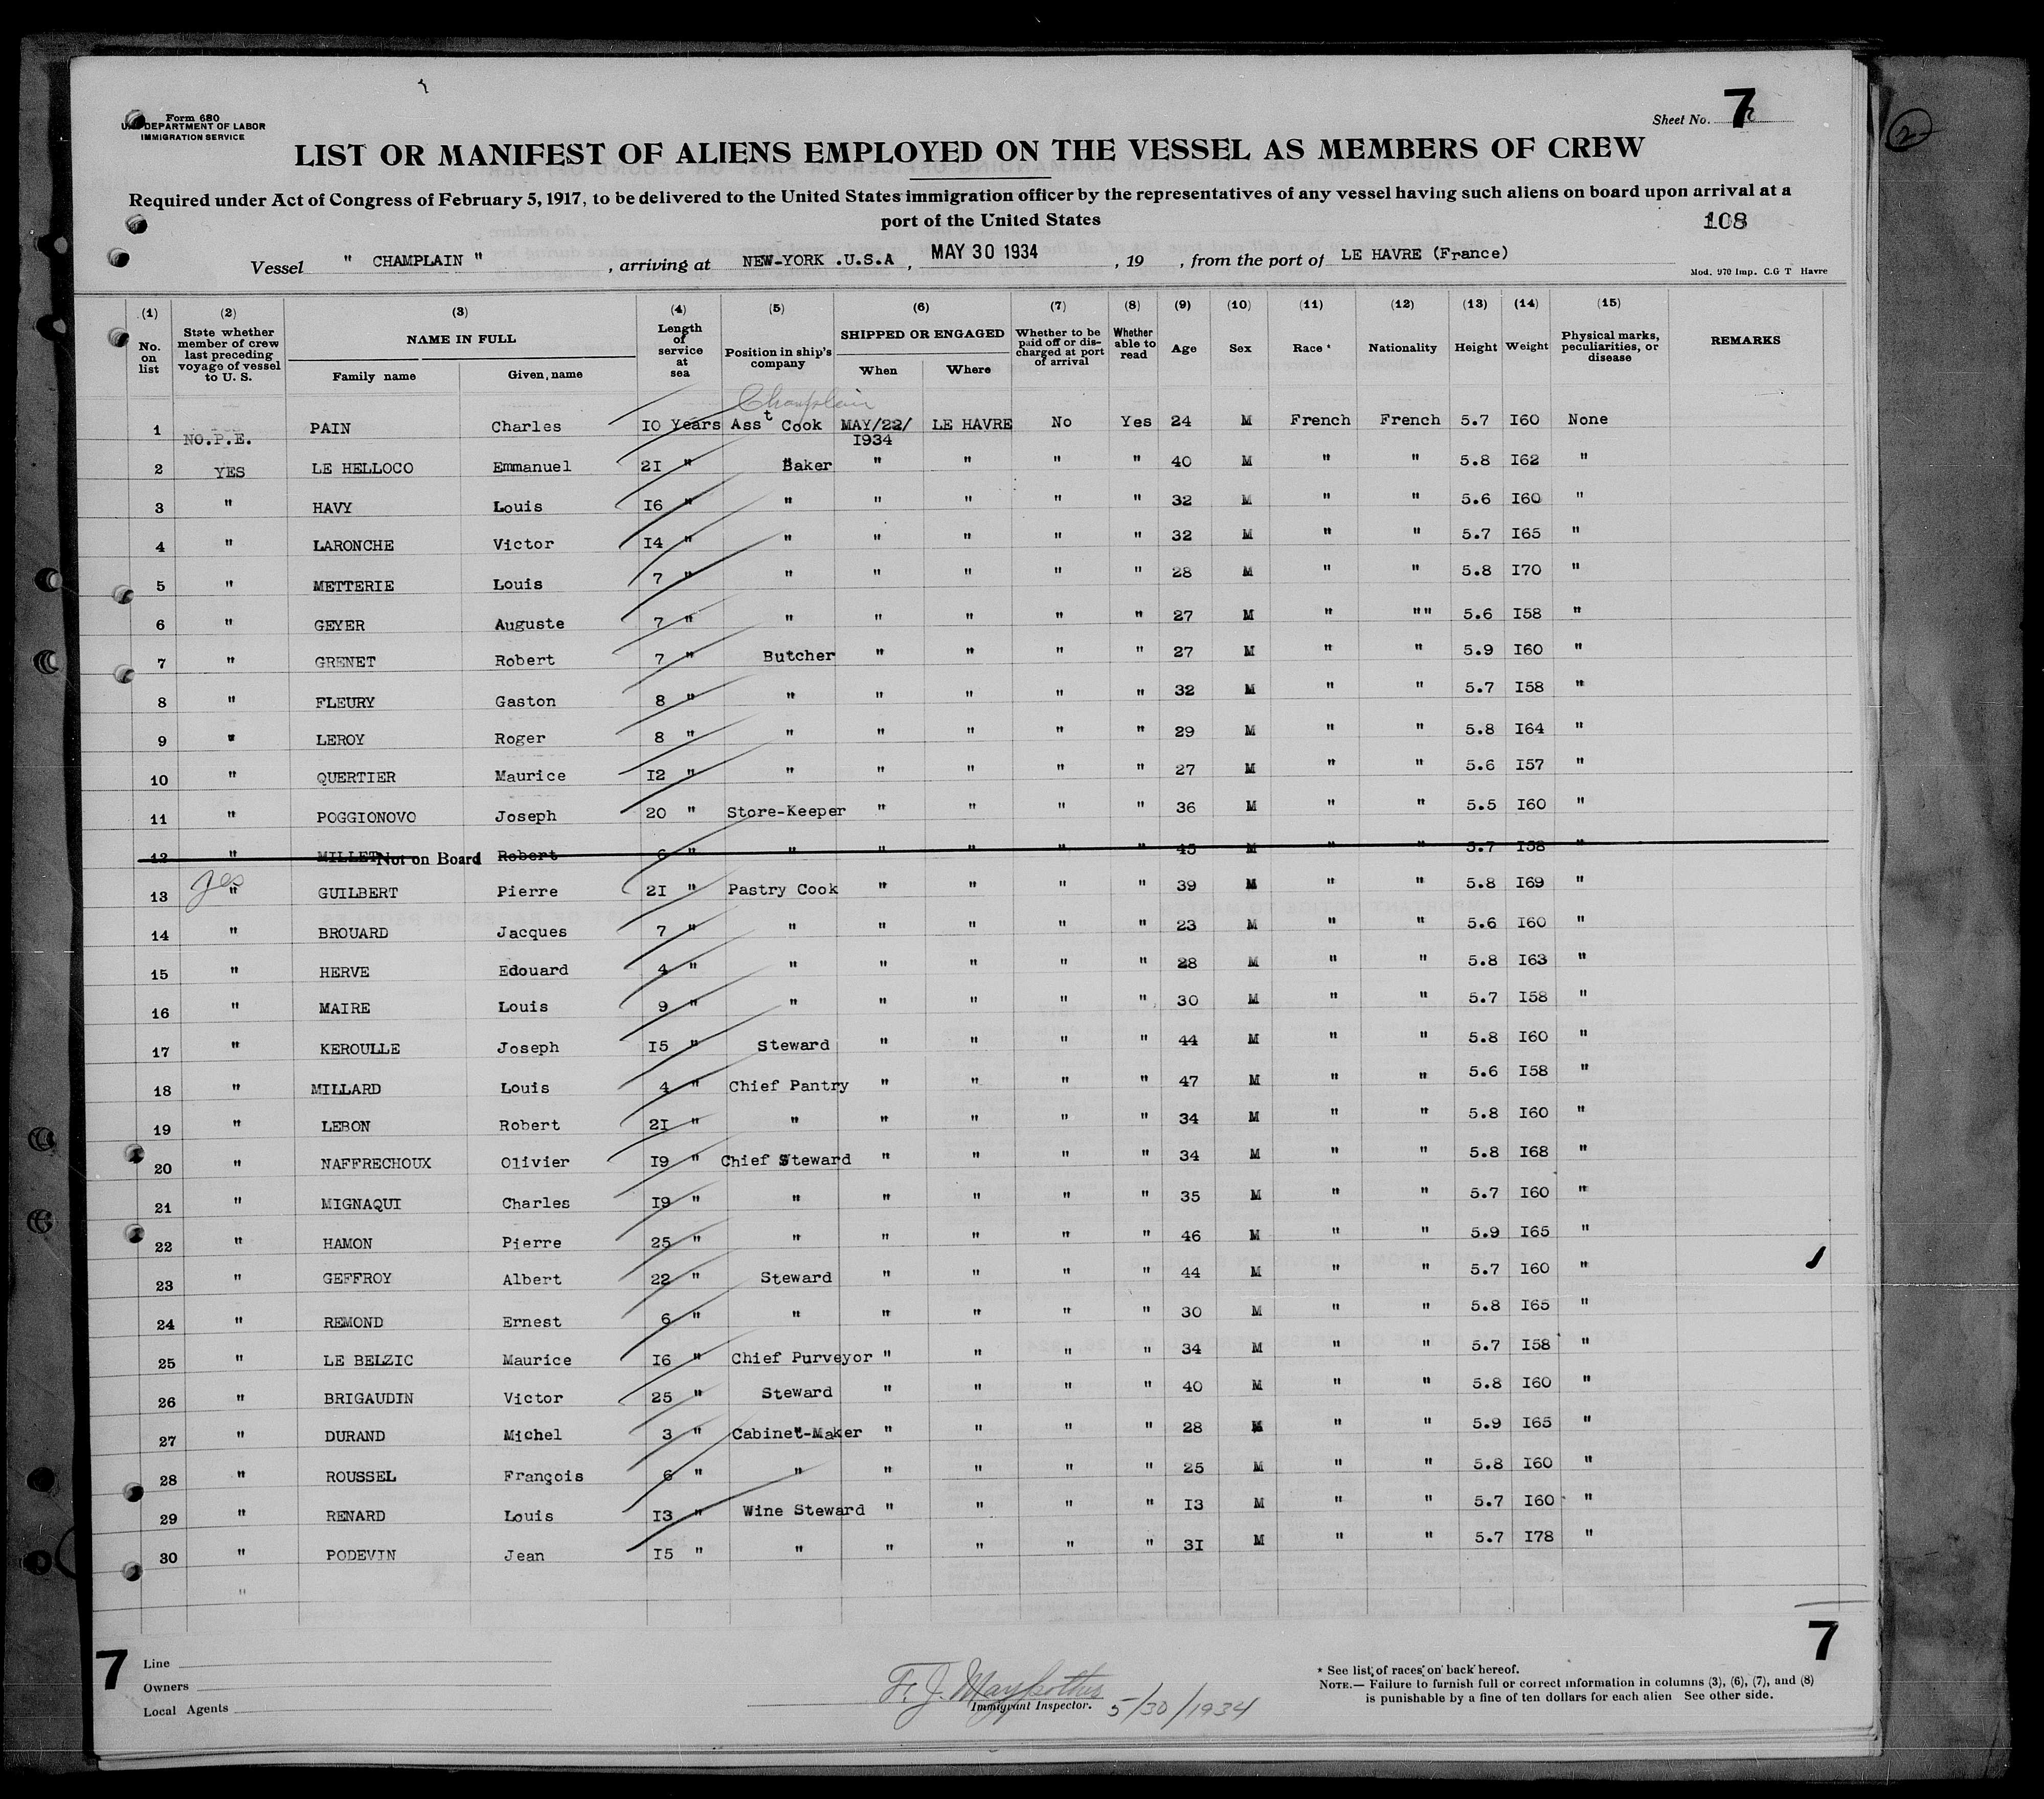 Form 680
U.S. DEPARTMENT OF LABOR
IMMIGRATION SERVICE
Sheet No. 7
2
LIST OR MANIFEST OF ALIENS EMPLOYED ON THE VESSEL AS MEMBERS OF CREW
Required under Act of Congress of February 5, 1917, to be delivered to the United States immigration officer by the representatives of any vessel having such aliens on board upon arrival at a
port of the United States
108
Vessel " CHAMPLAIN " , arriving at NEW-YORK .U.S.A , MAY 30 1934 , 19 , from the port of LE HAVRE (France)
Mod. 970 Imp. C.G T Havre
(1) (2) (3) (4) (5) (6) (7) (8) (9) (10) (11) (12) (13) (14) (15)
No. on list State whether member of crew last preceding voyage of vessel to U. S. NAME IN FULL Family name Given name Length of service at sea Position in ship's company SHIPPED OR ENGAGED When Where Whether to be paid off or discharged at port of arrival Whether able to read Age Sex Race * Nationality Height Weight Physical marks, peculiarities, or disease REMARKS
Champlain
1 NO.P.E. PAIN Charles I0 Years Asst Cook MAY/22/ I934 LE HAVRE No Yes 24 M French French 5.7 I60 None
2 YES LE HELLOCO Emmanuel 2I " Baker " " " " 40 M " " 5.8 I62 "
3 " HAVY Louis I6 " " " " " " 32 M " " 5.6 I60 "
4 " LARONCHE Victor I4 " " " " " " 32 M " " 5.7 I65 "
5 " METTERIE Louis 7 " " " " " " 28 M " " 5.8 I70 "
6 " GEYER Auguste 7 " " " " " " 27 M " "" 5.6 I58 "
7 " GRENET Robert 7 " Butcher " " " " 27 M " " 5.9 I60 "
8 " FLEURY Gaston 8 " " " " " " 32 M " " 5.7 I58 "
9 " LEROY Roger 8 " " " " " " 29 M " " 5.8 I64 "
10 " QUERTIER Maurice I2 " " " " " " 27 M " " 5.6 I57 "
11 " POGGIONOVO Joseph 20 " Store-Keeper " " " " 36 M " " 5.5 I60 "
12 " MILLET Not on Board Robert 6 " " " " " " 45 M " " 5.7 I58 "
13 yes " GUILBERT Pierre 2I " Pastry Cook " " " " 39 M " " 5.8 I69 "
14 " BROUARD Jacques 7 " " " " " " 23 M " " 5.6 I60 "
15 " HERVE Edouard 4 " " " " " " 28 M " " 5.8 I63 "
16 " MAIRE Louis 9 " " " " " " 30 M " " 5.7 I58 "
17 " KEROULLE Joseph I5 " Steward " " " " 44 M " " 5.8 I60 "
18 " MILLARD Louis 4 " Chief Pantry " " " " 47 M " " 5.6 I58 "
19 " LEBON Robert 2I " " " " " " 34 M " " 5.8 I60 "
20 " NAFFRECHOUX Olivier I9 " Chief Steward " " " " 34 M " " 5.8 I68 "
21 " MIGNAQUI Charles I9 " " " " " " 35 M " " 5.7 I60 "
22 " HAMON Pierre 25 " " " " " " 46 M " " 5.9 I65 "
23 " GEFFROY Albert 22 " Steward " " " " 44 M " " 5.7 I60 "
24 " REMOND Ernest 6 " " " " " " 30 M " " 5.8 I65 "
25 " LE BELZIC Maurice I6 " Chief Purveyor " " " " 34 M " " 5.7 I58 "
26 " BRIGAUDIN Victor 25 " Steward " " " " 40 M " " 5.8 I60 "
27 " DURAND Michel 3 " Cabinet-Maker " " " " 28 M " " 5.9 I65 "
28 " ROUSSEL François 6 " " " " " " 25 M " " 5.8 I60 "
29 " RENARD Louis I3 " Wine Steward " " " " I3 M " " 5.7 I60 "
30 " PODEVIN Jean I5 " " " " " " 3I M " " 5.7 I78 "
"
7
7
Line
Owners
Local Agents
F. J.
Immigrant Inspector. 5/30/1934
* See list of races on back hereof.
NOTE.— Failure to furnish full or correct information in columns (3), (6), (7), and (8)
is punishable by a fine of ten dollars for each alien See other side.